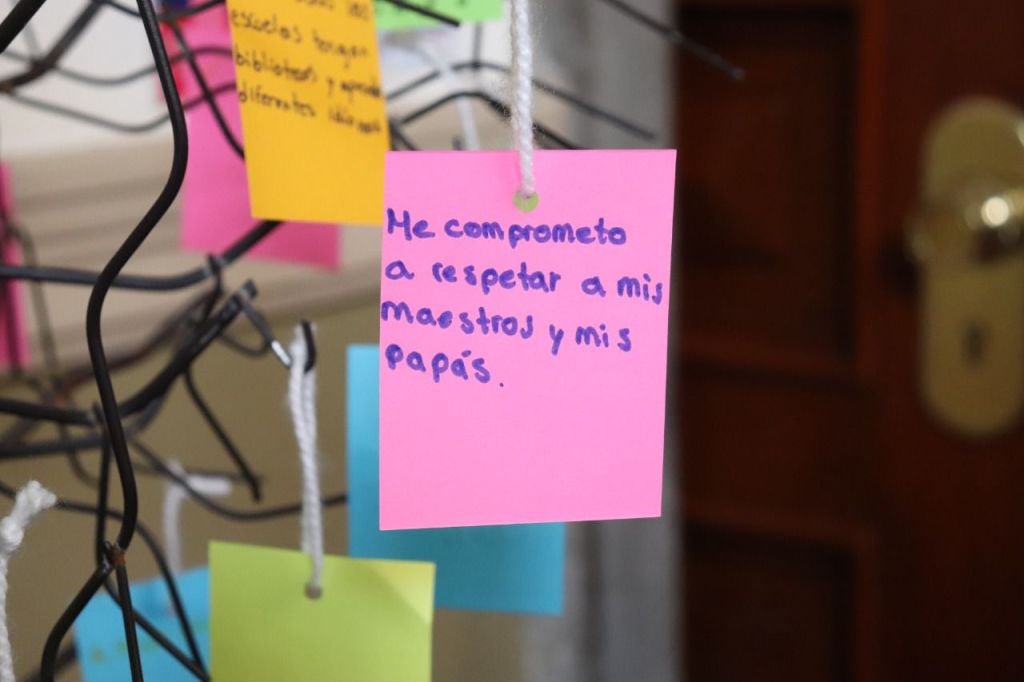 escuelas tengan
biblioteas y
diferentes
Me comprometo
a respetar a mis
maestros y mis
papás.